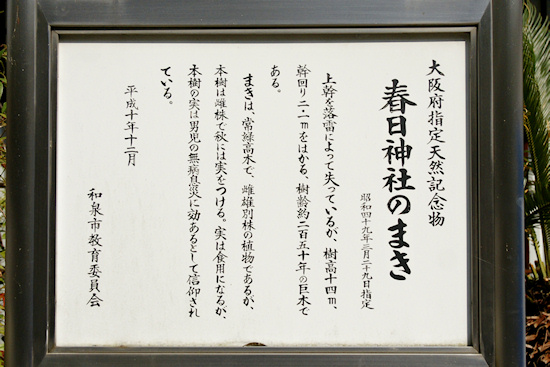 大阪府指定天然記念物
春日神社のまき
昭和四十九年三月二十九日指定
上幹を落雷によって失っているが、樹高十四m、
幹回り二・一mをはかる、樹齢約二百五十年の巨木で
ある。
まきは、常緑高木で、雌雄別株の植物であるが、
本樹は雌株で秋には実をつける。実は食用になるが、
本樹の実は男児の無病息災に効あるとして信仰され
ている。
平成十年十二月
和泉市教育委員会